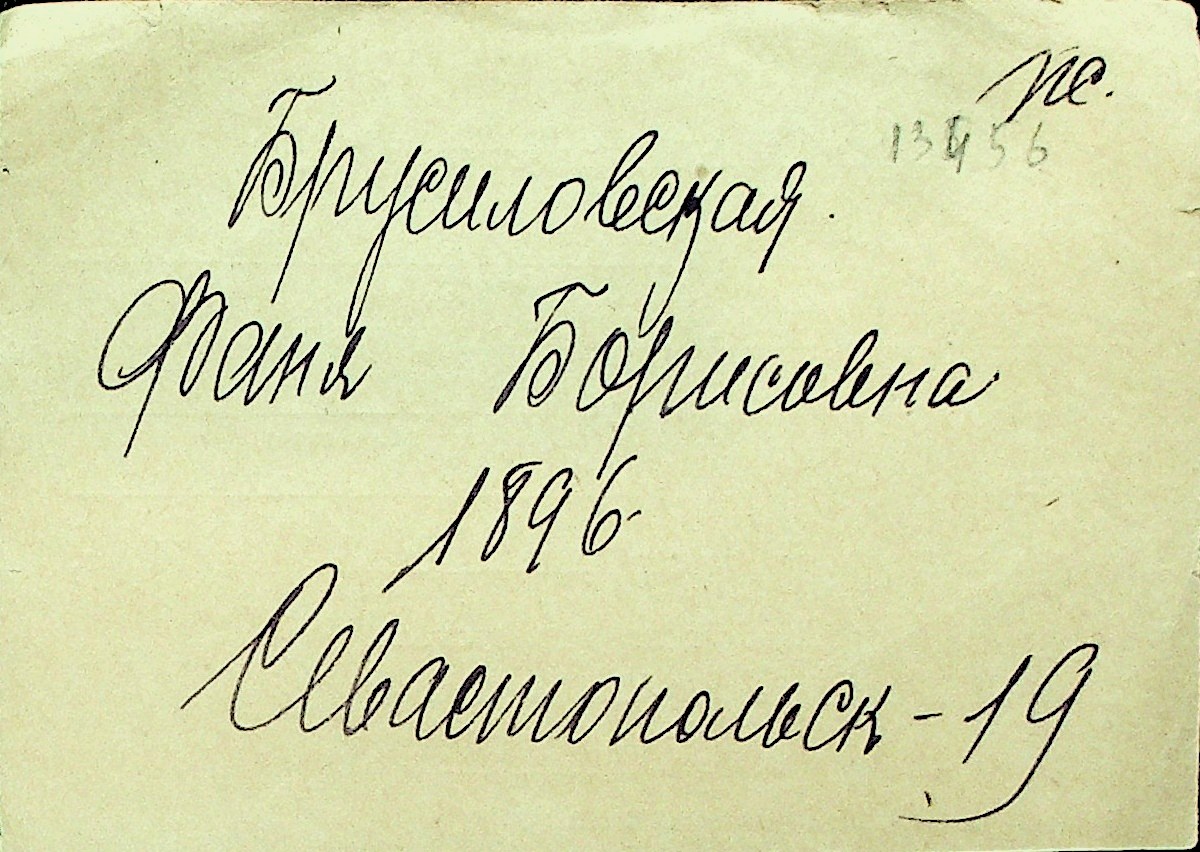 пс.
Брусиловская.
Фаня Борисовна
1896
Севастопольск - 19